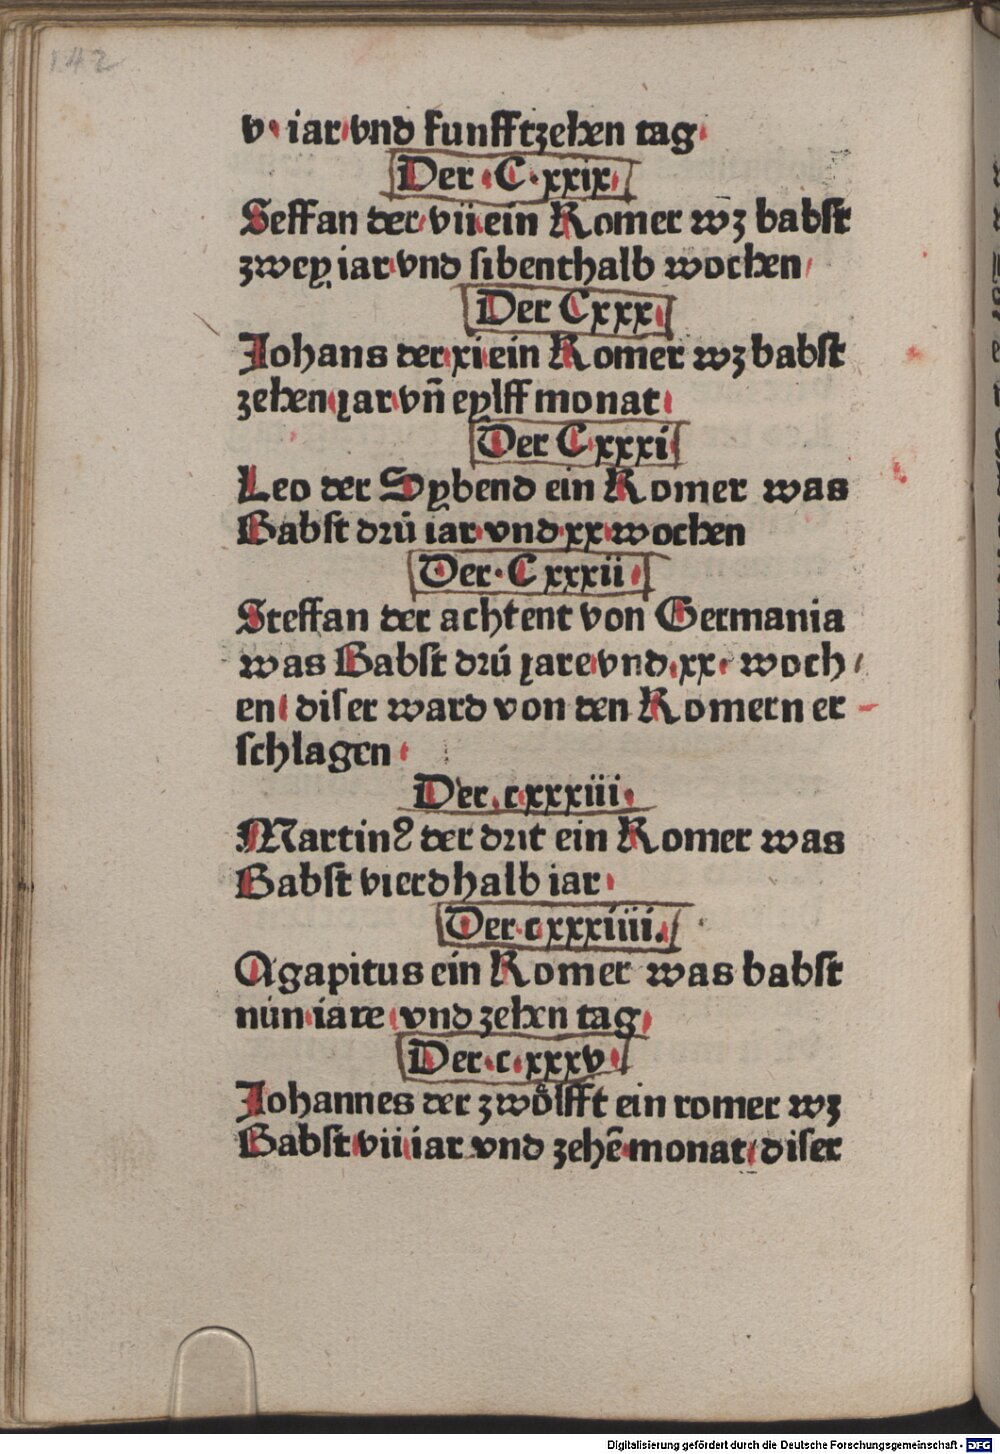 142
v· iar vnd funfftzehen tag
Der ·C·xxix
Seffan der vii ein Romer wz babst
zwey iar vnd sibenthalb wochen
Der Cxxx
Johans der xi ein Romer wz babst
zehen iar vñ eylff monat
Der Cxxxi
Leo der Sybend ein Romer was
Babst drú iar vnd xx wochen
Der· Cxxxii
Steffan der achtent von Germania
was Babst drú iare vnd xx woch
en diser ward von den Romern er
schlagen
Der cxxxiii
Martinꝰ der drit ein Romer was
Babst vierdhalb iar
Der cxxxiiii.
Agapitus ein Romer was babst
nún iare vnd zehen tag
Der c xxxv
Johannes der zwoͤlfft ein romer wz
Babst vii iar vnd zehē monat diser
Digitalisierung gefördert durch die Deutsche Forschungsgemeinschaft - DFG